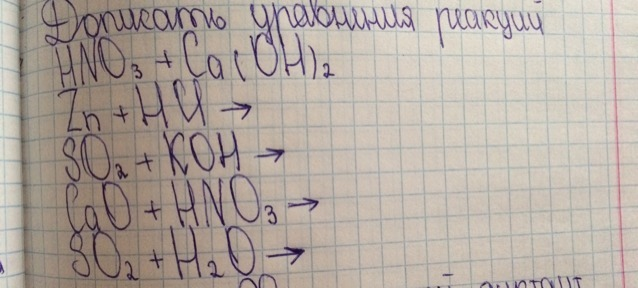 Дописать уравнения реакций
HNO₃ + Ca(OH)₂
Zn + HCl →
SO₂ + KOH →
CaO + HNO₃ →
SO₂ + H₂O →